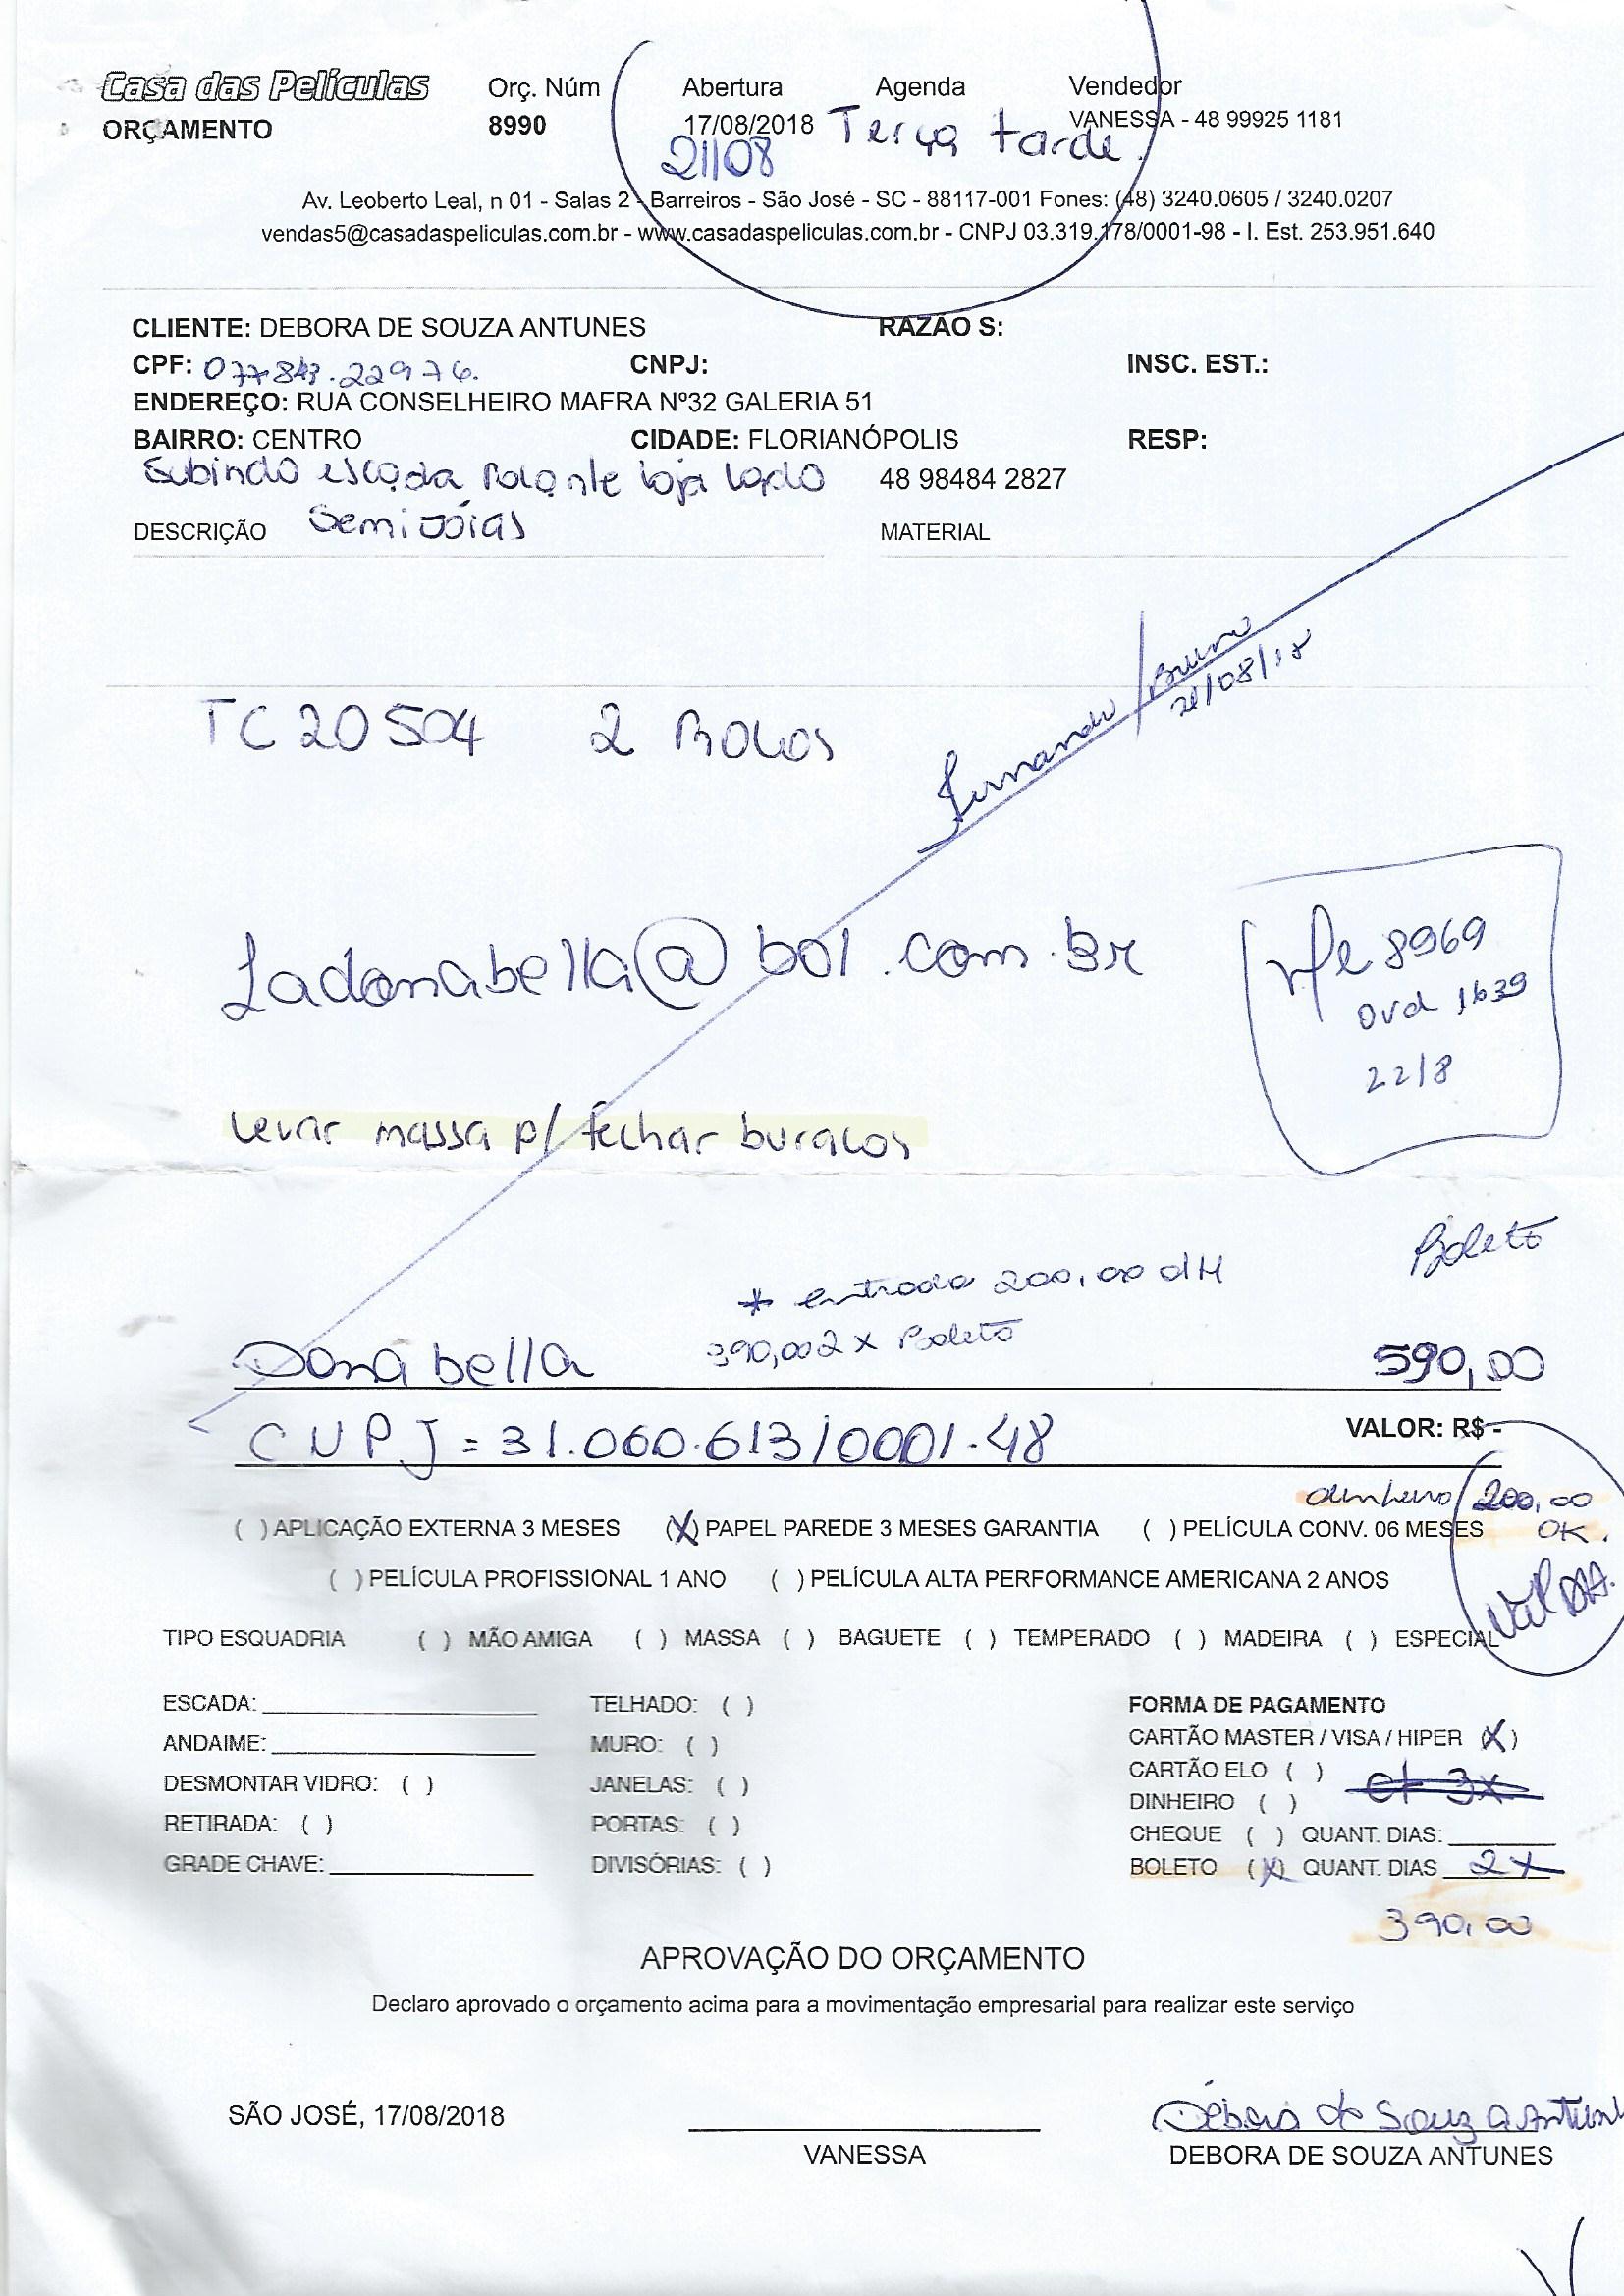 Casa das Películas Orç. Núm Abertura Agenda Vendedor
ORÇAMENTO 8990 17/08/2018 Terça tarde. VANESSA - 48 99925 1181
21/08
Av. Leoberto Leal, n 01 - Salas 2 - Barreiros - São José - SC - 88117-001 Fones: (48) 3240.0605 / 3240.0207
vendas5@casadaspeliculas.com.br - www.casadaspeliculas.com.br - CNPJ 03.319.178/0001-98 - I. Est. 253.951.640
CLIENTE: DEBORA DE SOUZA ANTUNES RAZÃO S:
CPF: 077843.22976. CNPJ: INSC. EST.:
ENDEREÇO: RUA CONSELHEIRO MAFRA Nº32 GALERIA 51
BAIRRO: CENTRO CIDADE: FLORIANÓPOLIS RESP:
Subindo escada Rolante loja lado 48 98484 2827
DESCRIÇÃO Semi jóias MATERIAL
Fernando / Bruno
21/08/18
TC 20504 2 Rolos
Ladonabella@bol.com.br
nfe 8969
1639
22/8
Levar massa p/ fechar buracos
Boleto
* entrada 200,00 dH
390,00 2 x Boleto
Dona bella 590,00
CNPJ = 31.060.613/0001-48 VALOR: R$ -
dinheiro 200,00
( ) APLICAÇÃO EXTERNA 3 MESES (X) PAPEL PAREDE 3 MESES GARANTIA ( ) PELÍCULA CONV. 06 MESES OK.
( ) PELÍCULA PROFISSIONAL 1 ANO ( ) PELÍCULA ALTA PERFORMANCE AMERICANA 2 ANOS
TIPO ESQUADRIA ( ) MÃO AMIGA ( ) MASSA ( ) BAGUETE ( ) TEMPERADO ( ) MADEIRA ( ) ESPECIAL
ESCADA: TELHADO: ( ) FORMA DE PAGAMENTO
ANDAIME: MURO: ( ) CARTÃO MASTER / VISA / HIPER (X)
DESMONTAR VIDRO: ( ) JANELAS: ( ) CARTÃO ELO ( )
ct 3x
RETIRADA: ( ) PORTAS: ( ) DINHEIRO ( )
CHEQUE ( ) QUANT. DIAS:
GRADE CHAVE: DIVISÓRIAS: ( ) BOLETO (X) QUANT. DIAS 2x
390,00
APROVAÇÃO DO ORÇAMENTO
Declaro aprovado o orçamento acima para a movimentação empresarial para realizar este serviço
SÃO JOSÉ, 17/08/2018 Débora de Souza Antunes
VANESSA DEBORA DE SOUZA ANTUNES